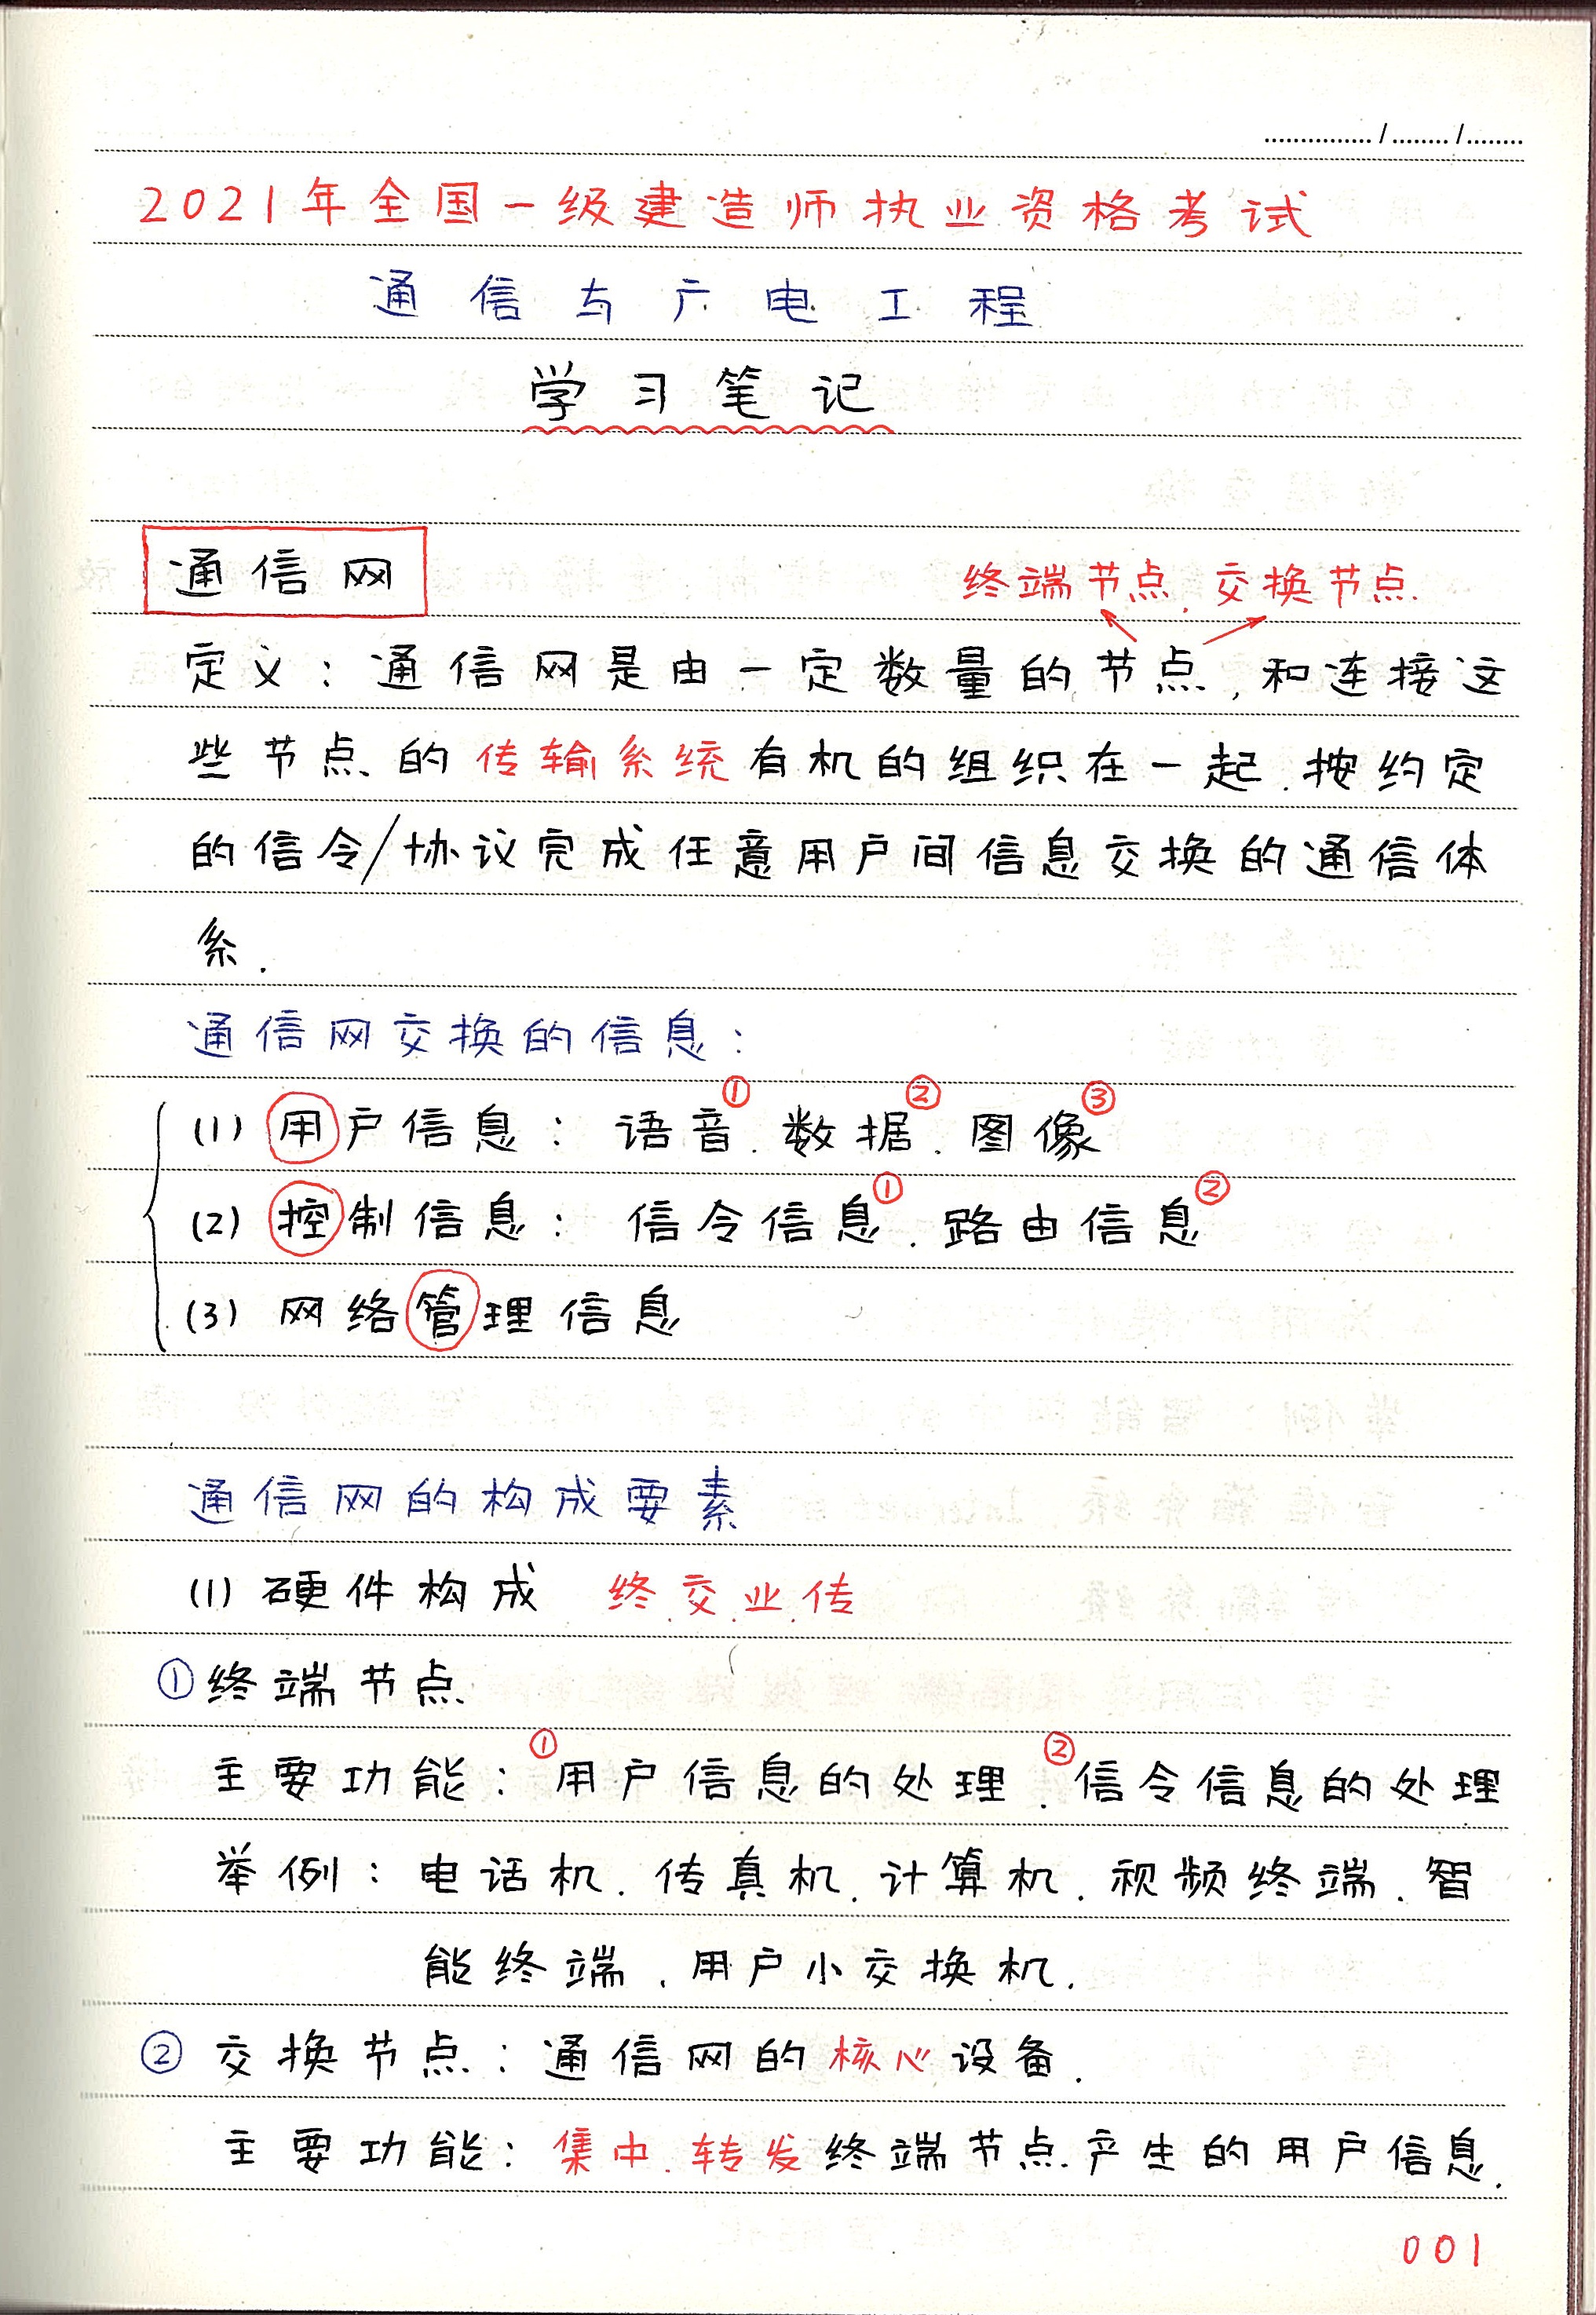 ............... / ........ / ........
2021年全国一级建造师执业资格考试
通信与广电工程
学习笔记
通信网
终端节点、交换节点
定义：通信网是由一定数量的节点，和连接这
些节点的传输系统有机的组织在一起，按约定
的信令/协议完成任意用户间信息交换的通信体
系.
通信网交换的信息：
(1) 用户信息：语音①、数据②、图像③
(2) 控制信息：信令信息①、路由信息②
(3) 网络管理信息
通信网的构成要素
(1) 硬件构成 终、交、业、传
①终端节点
主要功能：①用户信息的处理、②信令信息的处理
举例：电话机、传真机、计算机、视频终端、智
能终端、用户小交换机.
② 交换节点：通信网的核心设备.
主要功能：集中、转发终端节点产生的用户信息.
001